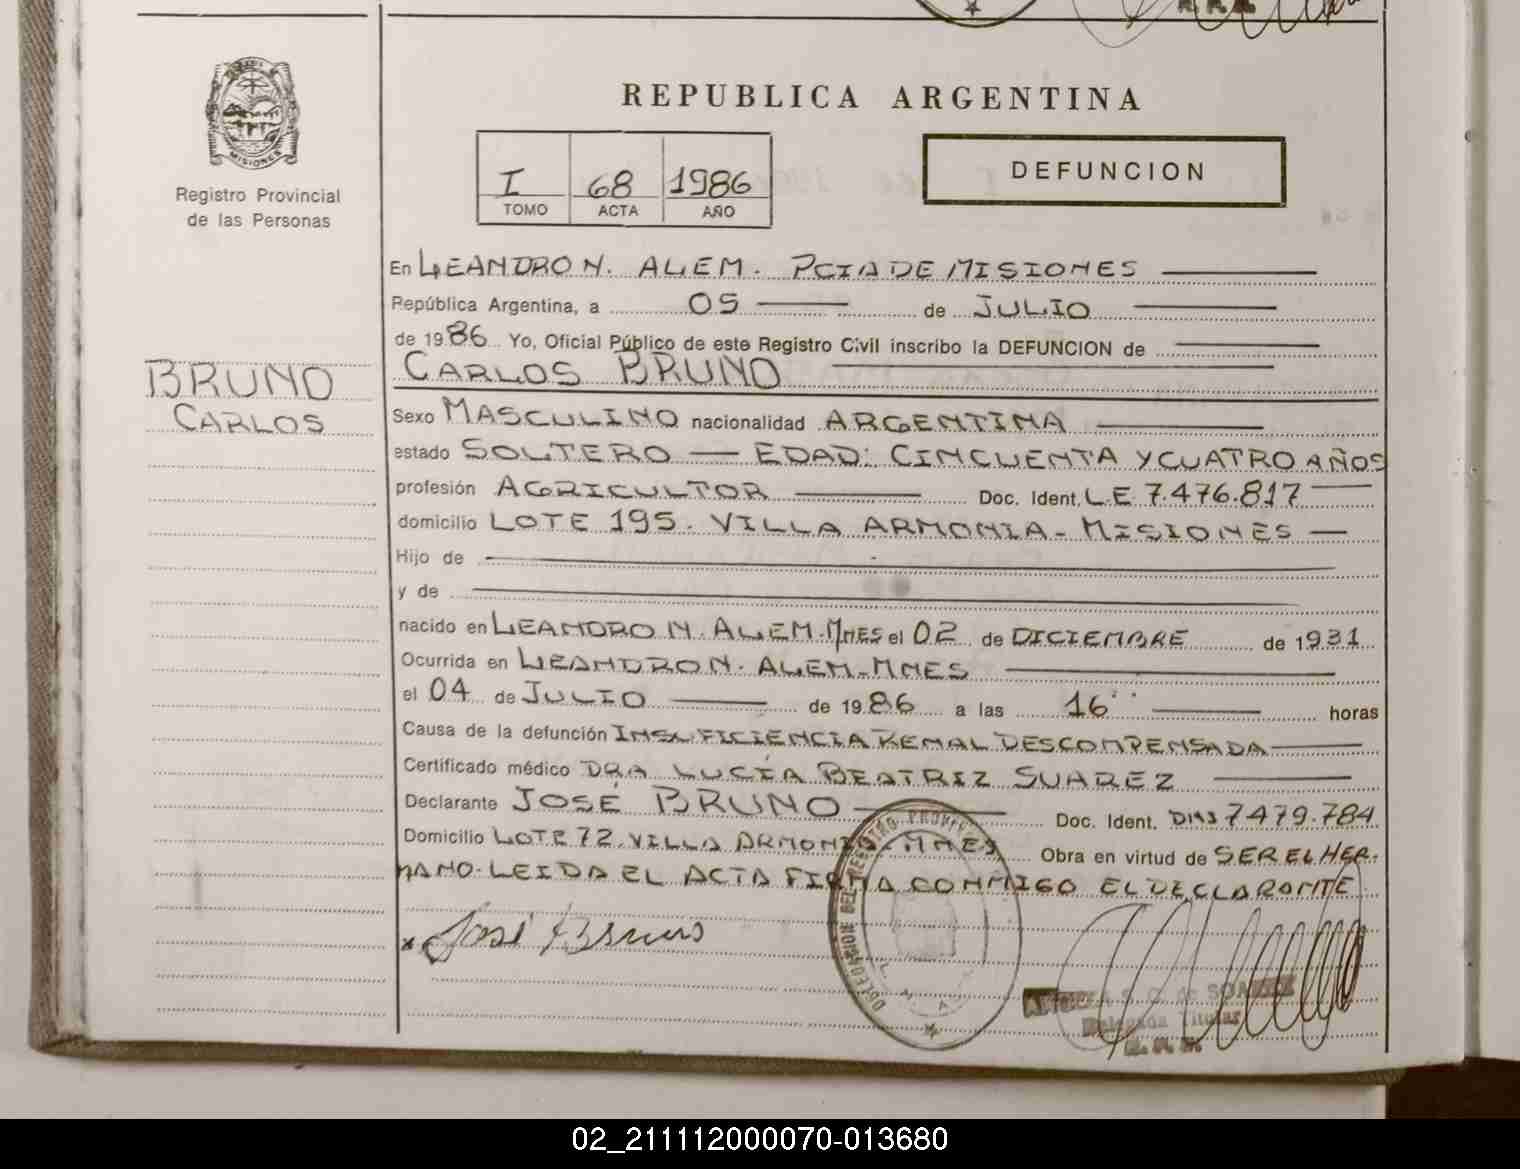 MISIONES
Registro Provincial
de las Personas
BRUNO
CARLOS
REPUBLICA ARGENTINA
I 68 1986
TOMO ACTA AÑO
DEFUNCION
En LEANDRO N. ALEM. PCIA DE MISIONES
República Argentina, a 05 de JULIO
de 1986 Yo, Oficial Público de este Registro Civil inscribo la DEFUNCION de
CARLOS BRUNO
Sexo MASCULINO nacionalidad ARGENTINA
estado SOLTERO — EDAD: CINCUENTA Y CUATRO AÑOS
profesión AGRICULTOR Doc. Ident. L.E. 7.476.817
domicilio LOTE 195. VILLA ARMONIA - MISIONES
Hijo de
y de
nacido en LEANDRO N. ALEM. MNES el 02 de DICIEMBRE de 1931
Ocurrida en LEANDRO N. ALEM - MNES
el 04 de JULIO de 1986 a las 16 horas
Causa de la defunción INSUFICIENCIA RENAL DESCOMPENSADA
Certificado médico DRA LUCÍA BEATRIZ SUAREZ
Declarante JOSÉ BRUNO Doc. Ident. 7479.784
Domicilio LOTE 72. VILLA ARMONIA - MNES Obra en virtud de SER EL HER-
MANO. LEIDA EL ACTA FIRMA CONMIGO EL DECLARANTE
José Bruno
DELEGACION DEL REGISTRO
de SOAREZ
Delegada Titular
02_211112000070-013680